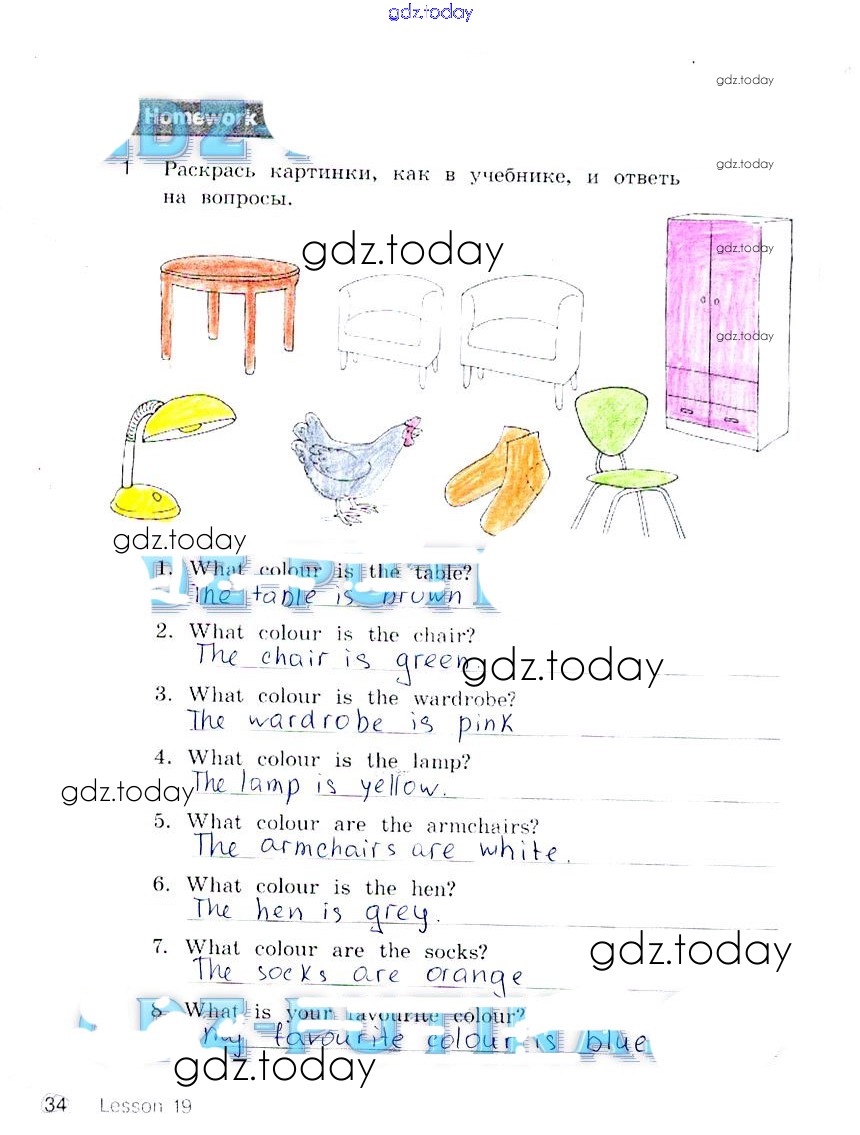 gdz.today
gdz.today
Homework
gdz.today
1 Раскрась картинки, как в учебнике, и ответь
на вопросы.
gdz.today
gdz.today
gdz.today
gdz.today
1. What colour is the table?
The table is brown
2. What colour is the chair?
The chair is green.
gdz.today
3. What colour is the wardrobe?
The wardrobe is pink
4. What colour is the lamp?
The lamp is yellow.
gdz.today
5. What colour are the armchairs?
The armchairs are white.
6. What colour is the hen?
The hen is grey.
7. What colour are the socks?
gdz.today
The socks are orange
8 What is your favourite colour?
my favourite colour is blue
gdz.today
34 Lesson 19